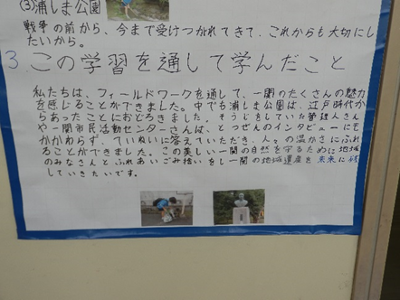 (3)浦しま公園
戦争の前から、今まで受けつがれてきて、これからも大切にし
たいから。
3 この学習を通して学んだこと
私たちは、フィールドワークを通して、一関のたくさんの魅力
を感じることができました。中でも浦しま公園は、江戸時代から
あったことにおどろきました。そうじをしていた管理人さん
や一関市民活動センターさんは、とつぜんのインタビューにも
かかわらず、ていねいに答えていただき、人々の温かさにふれ
ることができました。この美しい一関の自然を守るために地域
のみなさんとふれあいごみ拾いをし一関の地域遺産を未来に残
していきたいです。